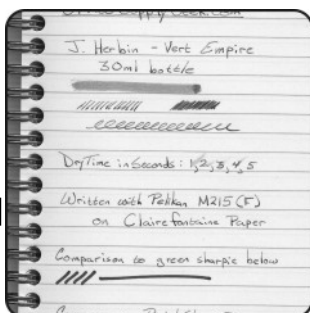 OfficeSupplyGeek.com
J. Herbin - Vert Empire
30ml bottle
Dry Time in Seconds: 1, 2, 3, 4, 5
Written with Pelikan M215 (F)
on Clairefontaine Paper
Comparison to green sharpie below